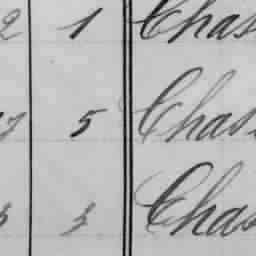 2 1 Chas
7 5 Chas
3 3 Chas